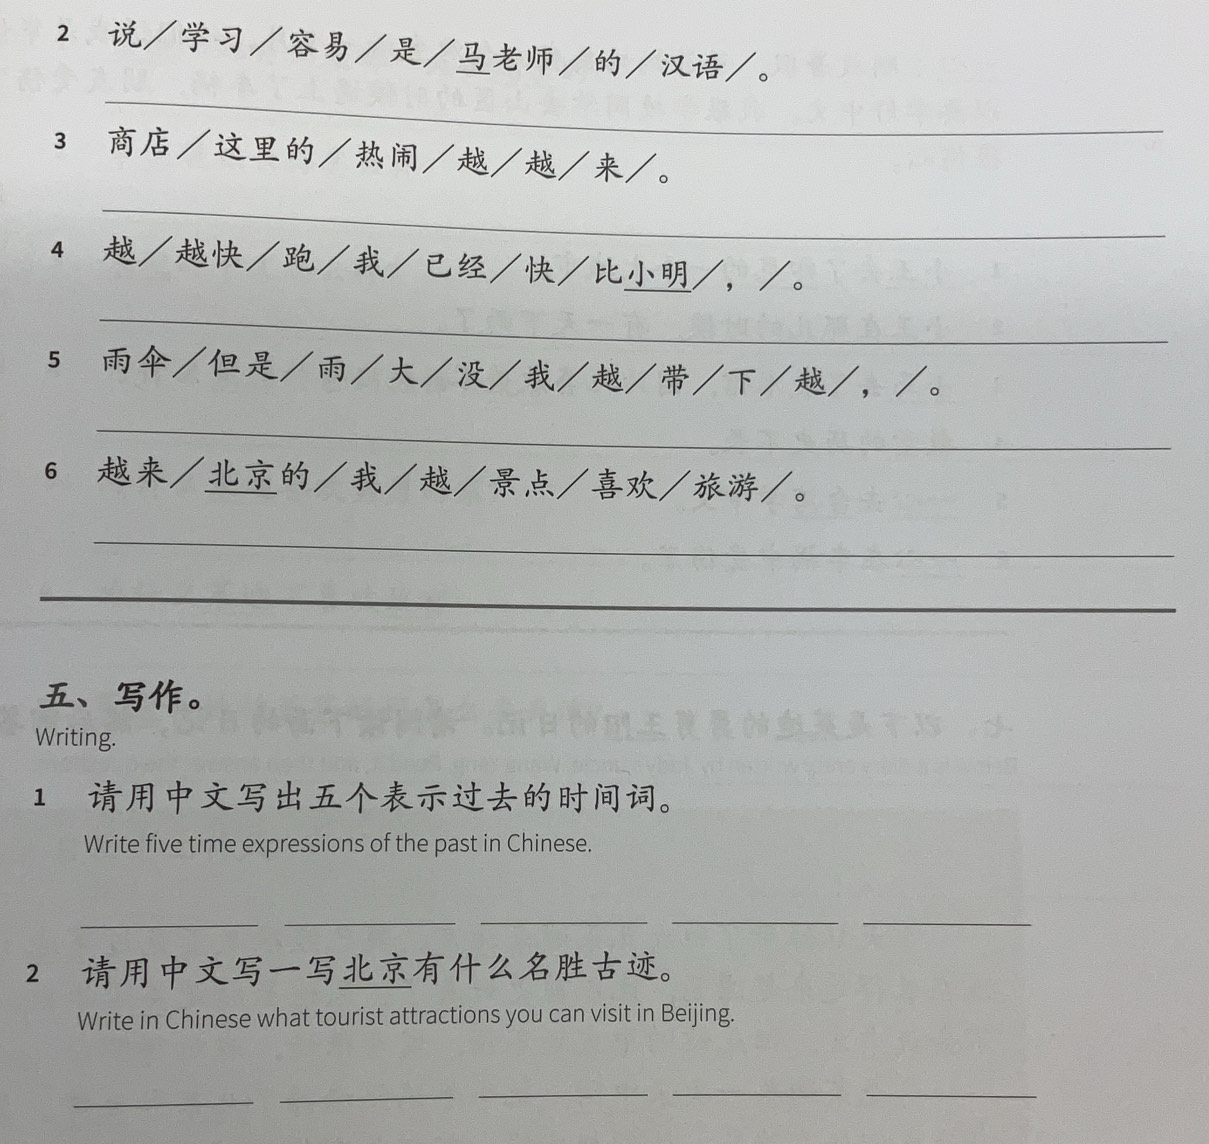 2 说／学习／容易／是／马老师／的／汉语／。
3 商店／这里的／热闹／越／越／来／。
4 越／越快／跑／我／已经／快／比小明／，／。
5 雨伞／但是／雨／大／没／我／越／带／下／越／，／。
6 越来／北京的／我／越／景点／喜欢／旅游／。
五、写作。
Writing.
1 请用中文写出五个表示过去的时间词。
Write five time expressions of the past in Chinese.
2 请用中文写一写北京有什么名胜古迹。
Write in Chinese what tourist attractions you can visit in Beijing.